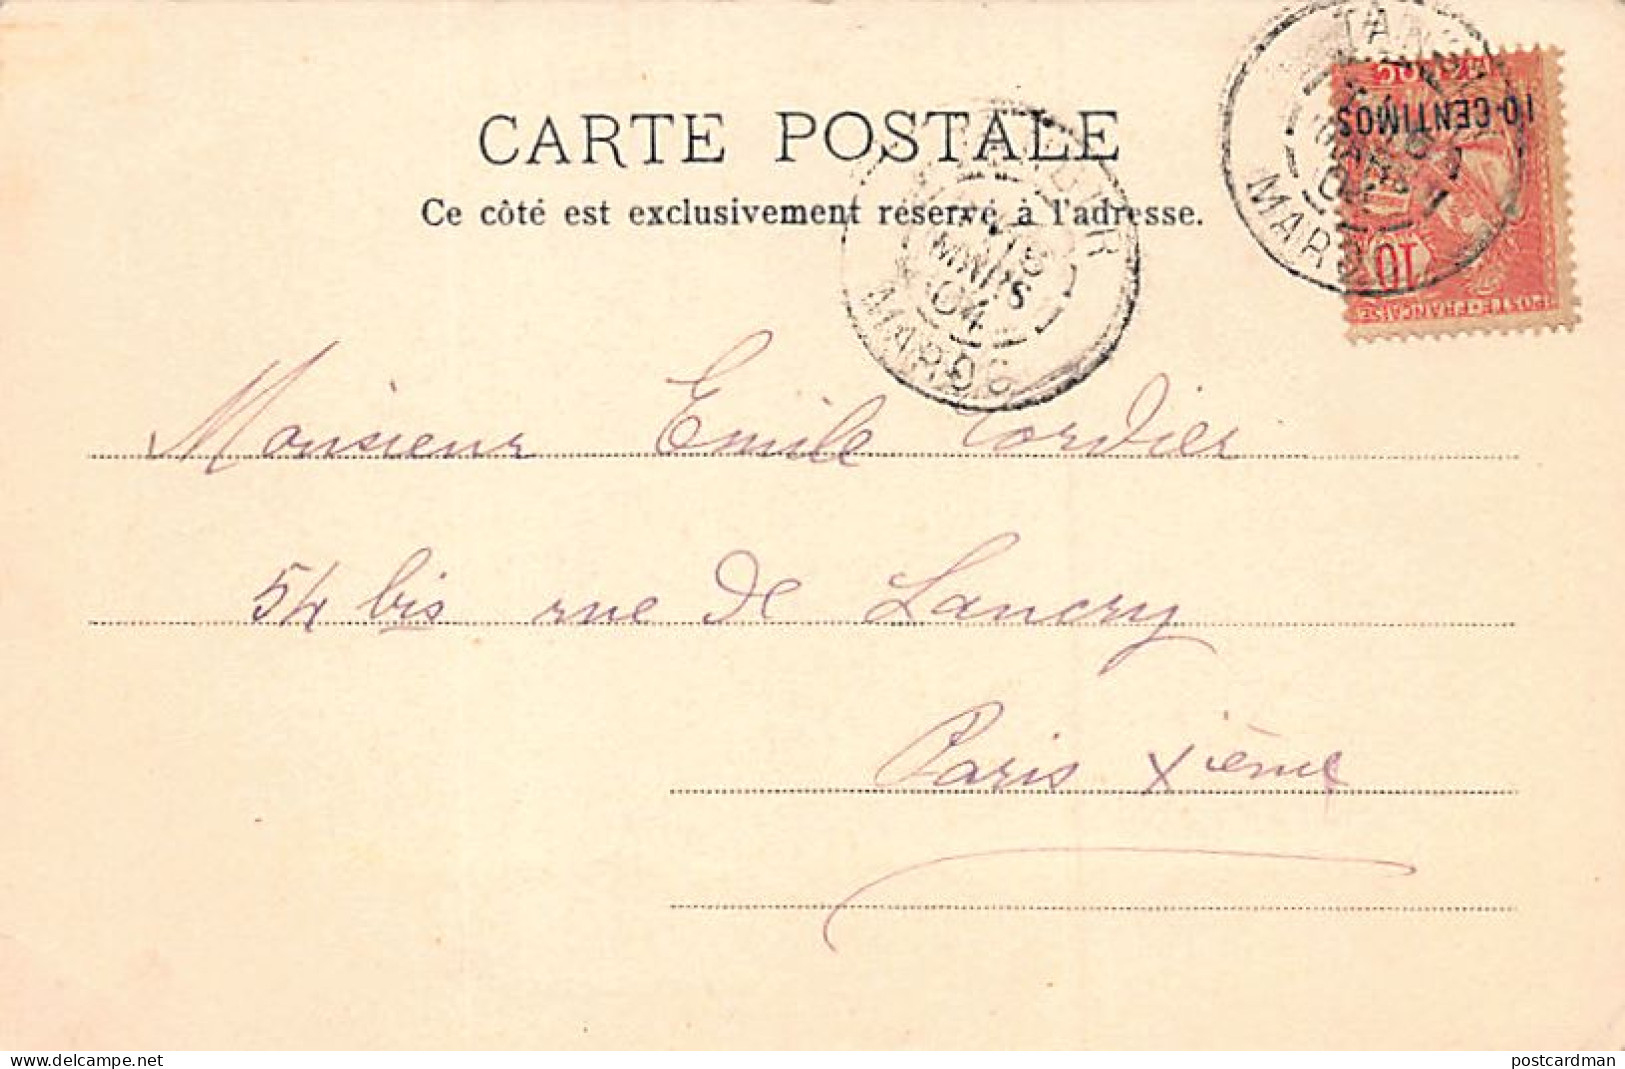 CARTE POSTALE
Ce côté est exclusivement réservé à l'adresse.
TANGER
MARS
04
MAROC
TAN
MARS
MAROC
10 CENTIMOS
10
POSTE FRANÇAISE
Monsieur Emile Cordier
54 bis rue de Lancry
Paris Xième
www.delcampe.net
postcardman